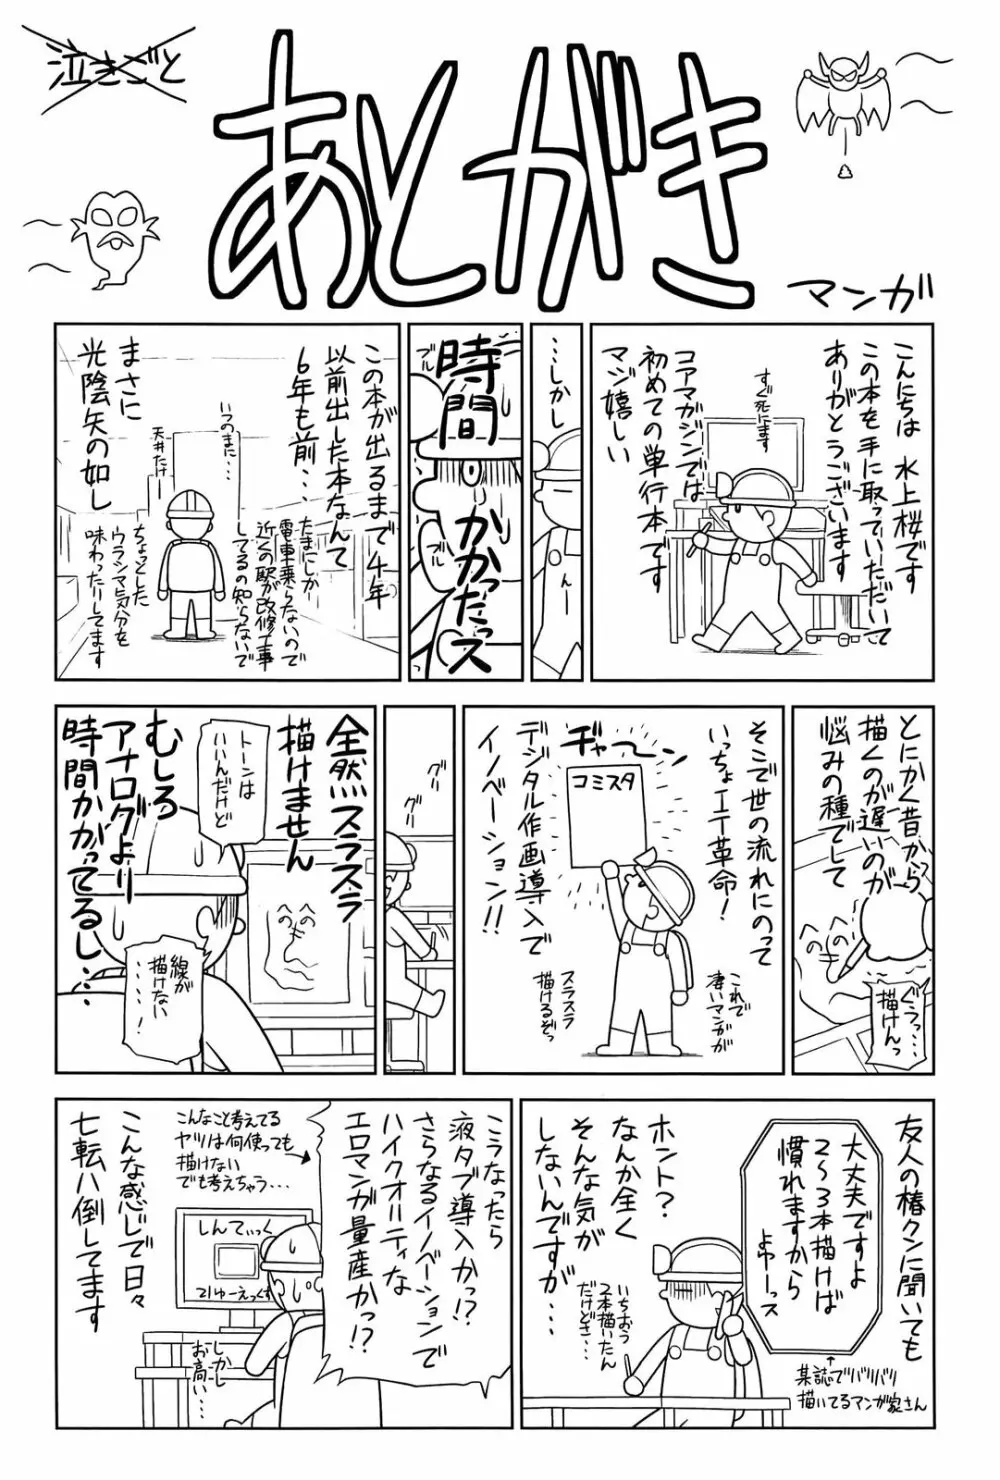 泣きごと
あとがき
マンガ
こんにちは 水上桜です
この本を手に取っていただいて
ありがとうございます
すぐ死にます
コアマガジンでは
初めての単行本です
マジ嬉しい
…しかし
ん〜
時間
かかったっス
ブル
ブル
この本が出るまで4年
以前出した本なんて
6年も前…
たまにしか
電車乗らないので
近くの駅が改修工事
してるの知らないで
いつのまに…
天井たけー
まさに
光陰矢の如し
ちょっとした
ウラシマ気分を
味わったりしてます
とにかく昔から
描くのが遅いのが
悩みの種でして
ぐうっ…
描けんっ
そこで世の流れにのって
いっちょIT革命!
ヂャーン
コミスタ
デジタル作画導入で
イノベーション!!
これで
凄いマンガが
スラスラ
描けるぞっ
グリ
グリ
全然スラスラ
描けません
トーンは
いいんだけど
むしろ
アナログより
時間かかってるし…
線が
描けない
……!
友人の椿クンに聞いても
大丈夫ですよ
2〜3本描けば
慣れますから
よゆーっス
某誌でバリバリ
描いてるマンガ家さん
ホント?
なんか全く
そんな気が
しないんですが…
いちおう
2本描いたん
だけどさ…
こうなったら
液タブ導入かっ!?
さらなるイノベーションで
ハイクオリティな
エロマンガ量産かっ!?
こんなこと考えてる
ヤツは何使っても
描けない
でも考えちゃう…
しんてぃっく
21ゆーえっくす
しかし
お高い…
こんな感じで日々
七転八倒してます